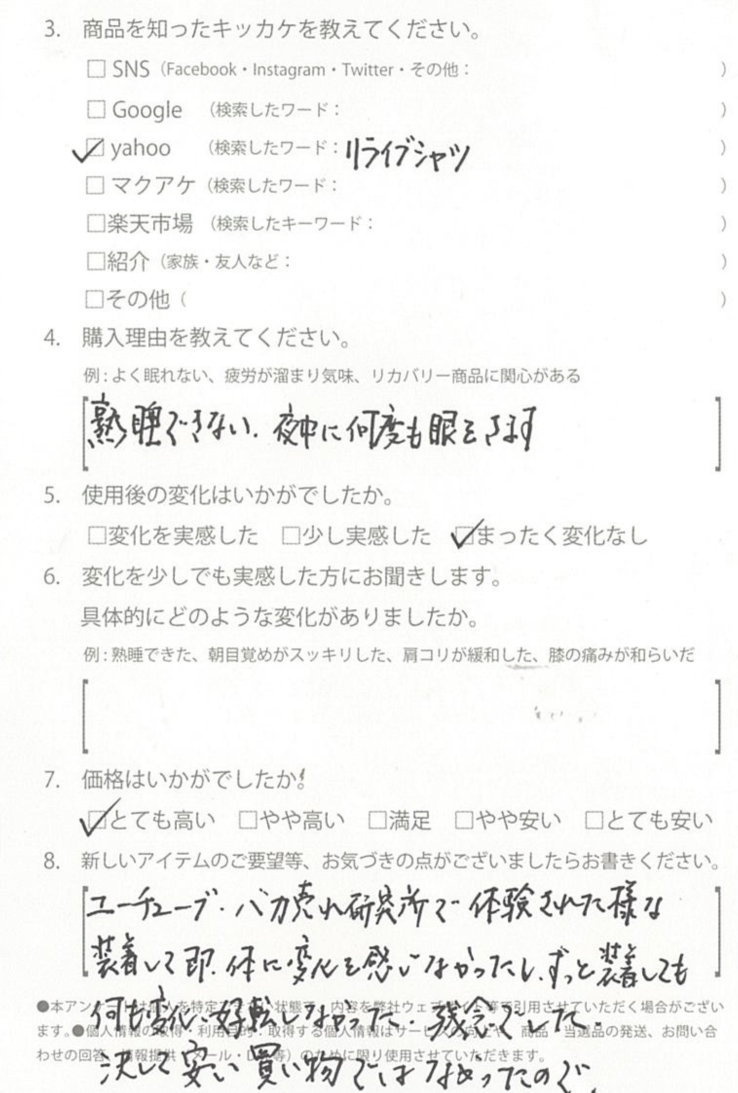 3. 商品を知ったキッカケを教えてください。
□ SNS（Facebook・Instagram・Twitter・その他： ）
□ Google （検索したワード： ）
☑ yahoo （検索したワード：リライブシャツ ）
□ マクアケ（検索したワード： ）
□楽天市場（検索したキーワード： ）
□紹介（家族・友人など： ）
□その他（ ）
4. 購入理由を教えてください。
例：よく眠れない、疲労が溜まり気味、リカバリー商品に関心がある
熟睡できない、夜中に何度も眼をさます
5. 使用後の変化はいかがでしたか。
□変化を実感した □少し実感した ☑まったく変化なし
6. 変化を少しでも実感した方にお聞きします。
具体的にどのような変化がありましたか。
例：熟睡できた、朝目覚めがスッキリした、肩コリが緩和した、膝の痛みが和らいだ
7. 価格はいかがでしたか。
☑とても高い □やや高い □満足 □やや安い □とても安い
8. 新しいアイテムのご要望等、お気づきの点がございましたらお書きください。
ユーチューブ・バカ売れ研究所で体験された様な
装着して即、体に変化を感じなかったし、ずっと装着しても
●本アンケートは個人を特定 ない状態で、内容を弊社ウェブサイト等で引用させていただく場合がござい
何も変化、好転しなかった。残念でした。
ます。●個人情報の取得・利用目的・取得する個人情報はサービスの向上や、商品・当選品の発送、お問い合
わせの回答、情報提供（メール・DM等）のために限り使用させていただきます。
決して安い買い物ではなかったので、